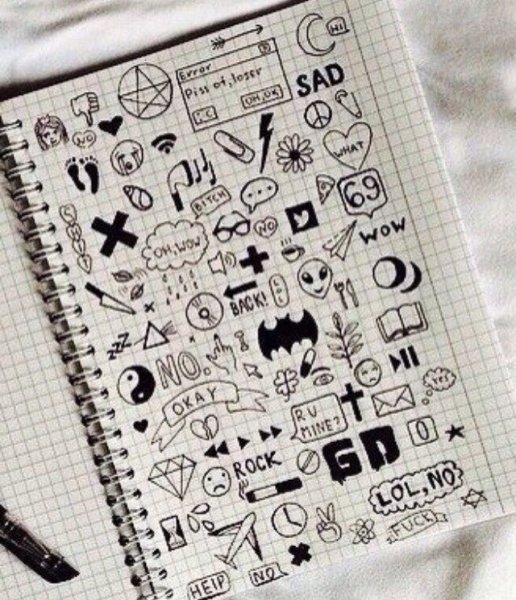 HI
Error
Piss of, loser
:C
OH, OK
SAD
NO
WHAT
BITCH
69
NO
OH, WOW
WOW
BACK!
zzz
NO.
OKAY
yes
R U
MINE?
ROCK
GD
0
LOL, NO
FUCK
HElP
NO